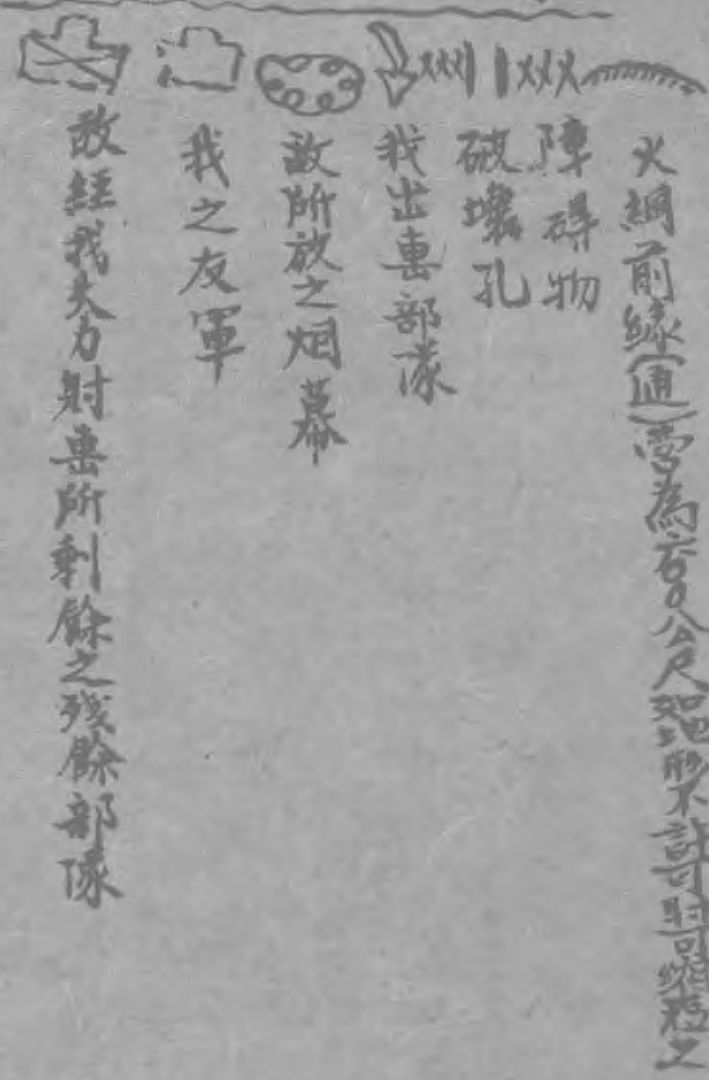 火網前緣(通)常為六百公尺如地形不許可時可縮短之
障碍物
破壞孔
我出擊部隊
敵所放之烟幕
我之友軍
敵經我火力射擊所剩餘之殘餘部隊